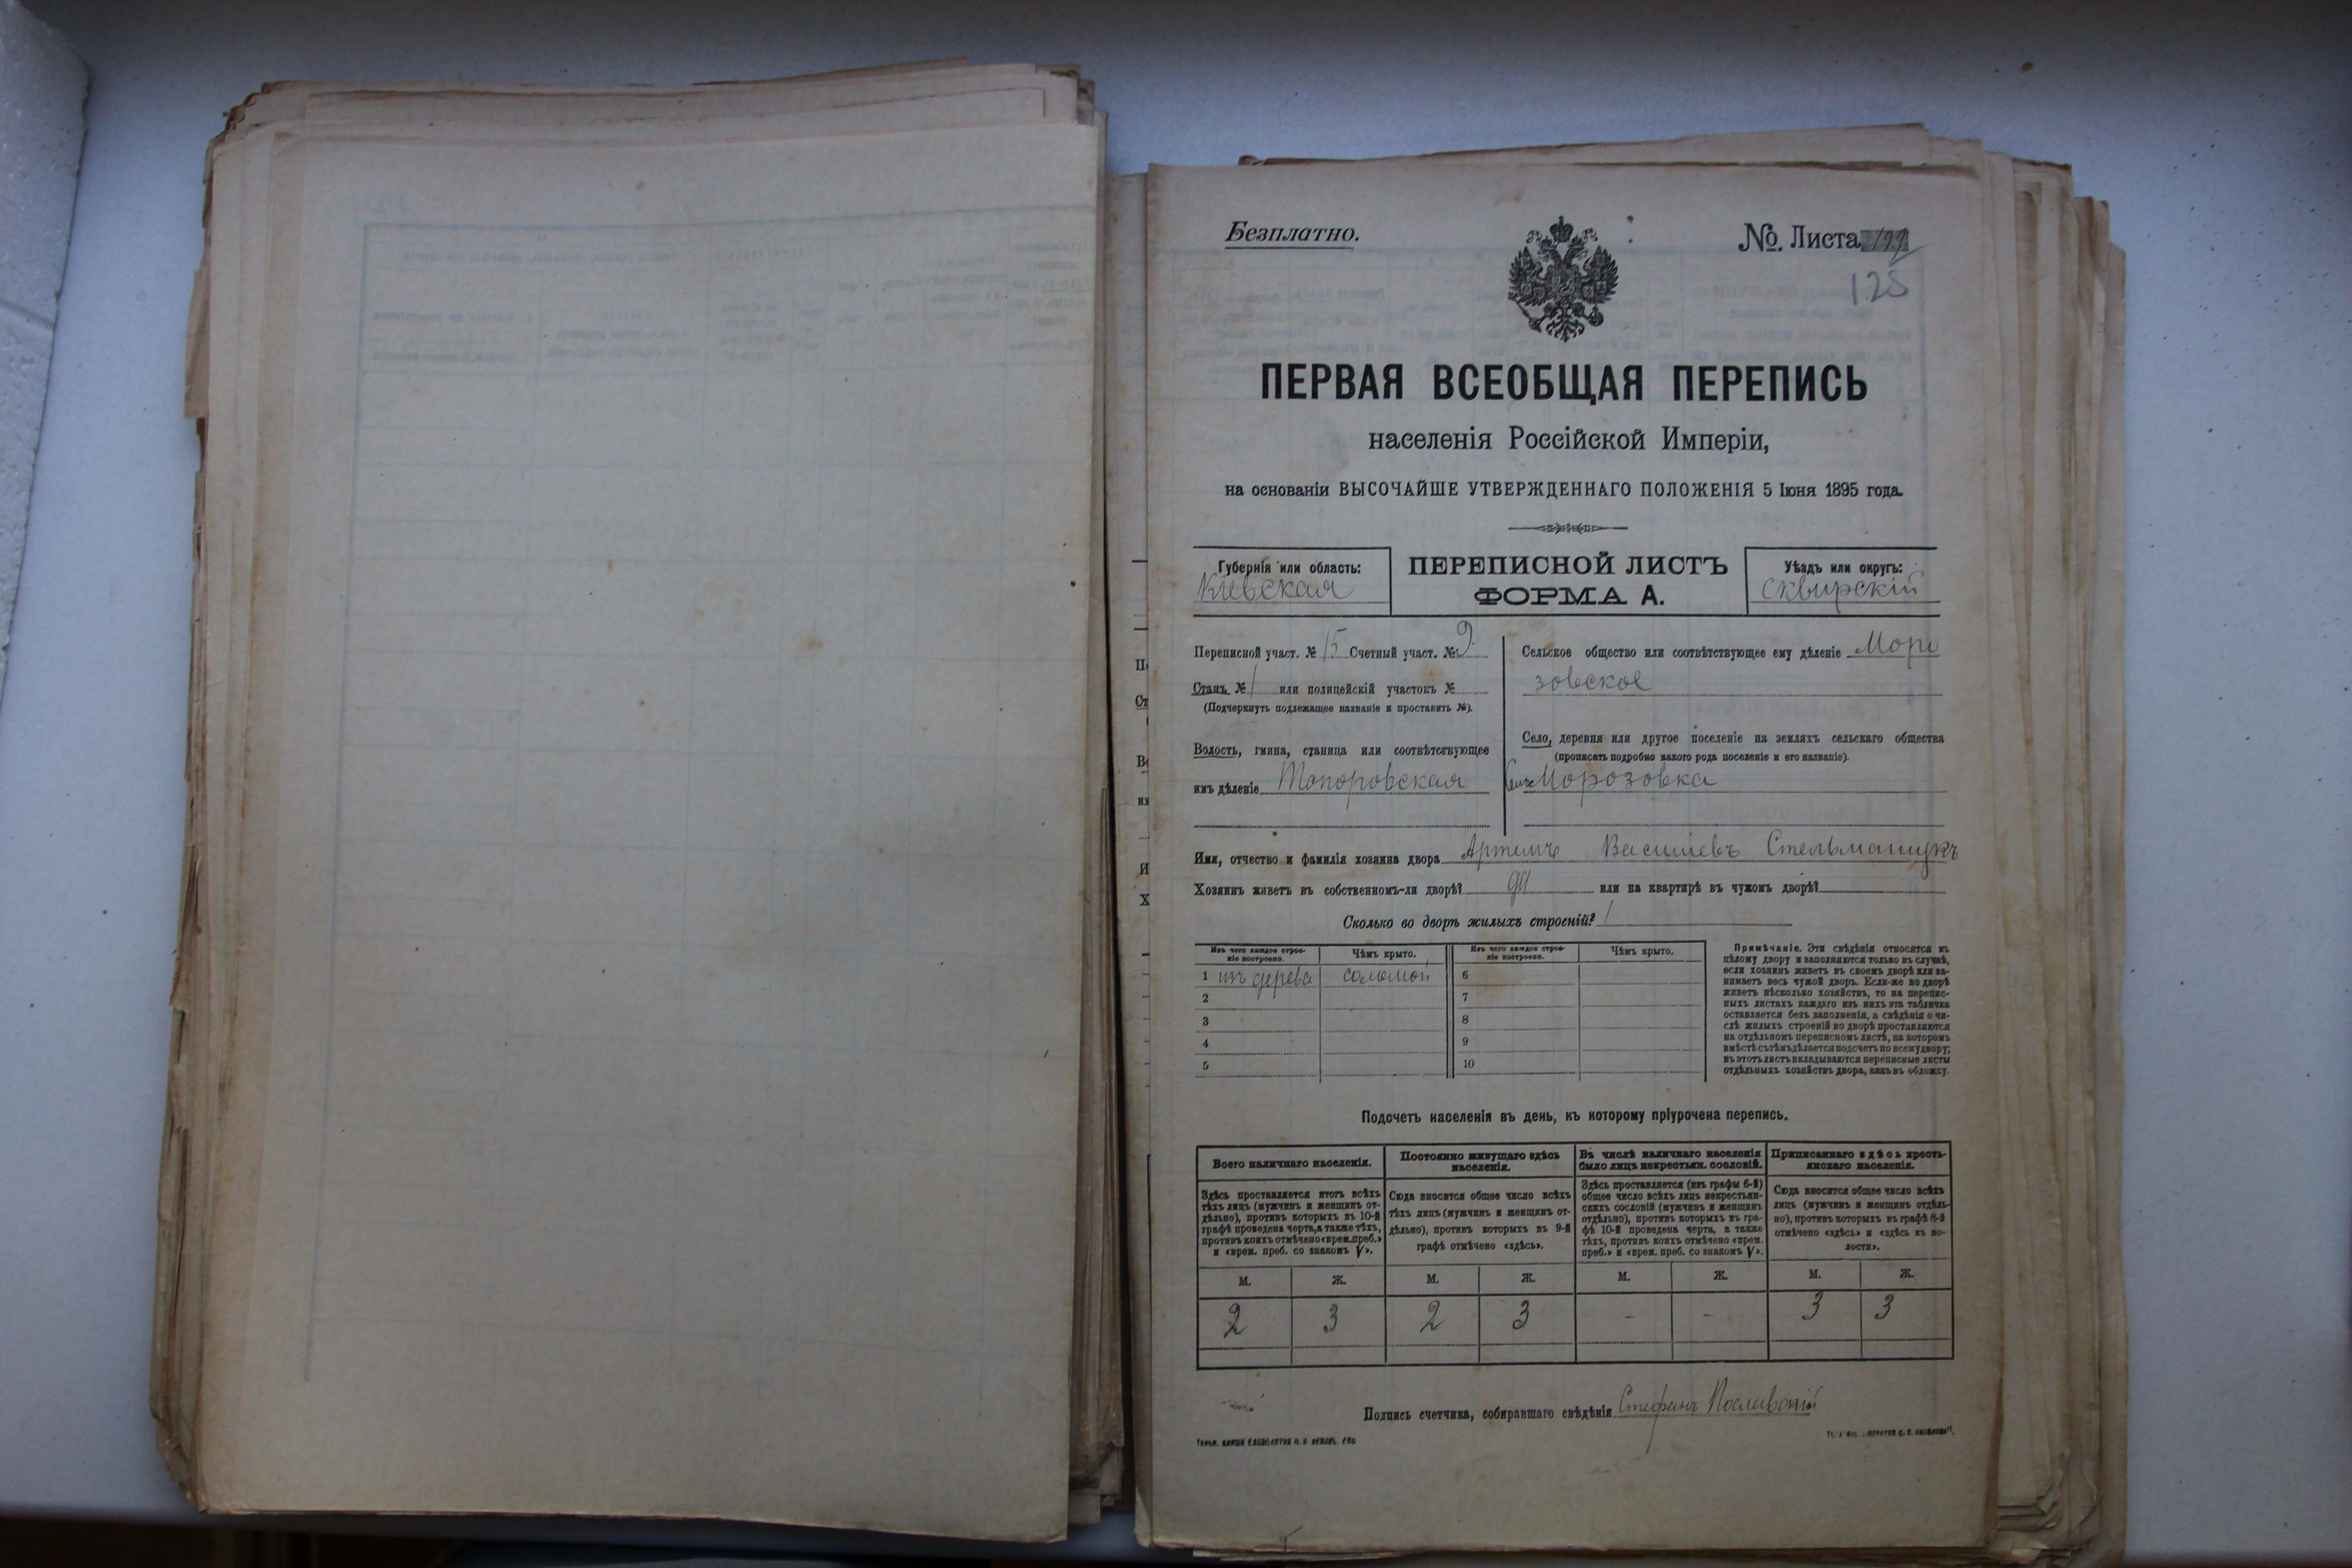 Безплатно.
№ Листа 199
125
ПЕРВАЯ ВСЕОБЩАЯ ПЕРЕПИСЬ
населенія Россійской Имперіи,
на основаніи ВЫСОЧАЙШЕ УТВЕРЖДЕННАГО ПОЛОЖЕНІЯ 5 Іюня 1895 года.
Губернія или область:
Кіевская
ПЕРЕПИСНОЙ ЛИСТЪ
ФОРМА А.
Уѣздъ или округъ:
Сквирскій
Переписной участ. № 15 Счетный участ. № 9.
Станъ № 1 или полицейскій участокъ №
(Подчеркнуть подлежащее названіе и проставить №).
Волость, гмина, станица или соотвѣтствующее
имъ дѣленіе Топоровская
Сельское общество или соотвѣтствующее ему дѣленіе Моро
зовское
Село, деревня или другое поселеніе на земляхъ сельскаго общества
(прописать подробно какого рода поселеніе и его названіе).
Морозовка
Имя, отчество и фамилія хозяина двора Артемъ Василіевъ Стельмащукъ
Хозяинъ живетъ въ собственномъ-ли дворѣ? да или на квартирѣ въ чужомъ дворѣ?
Сколько во дворѣ жилыхъ строеній? 1
Изъ чего каждое строе-
ніе построено.
Чѣмъ крыто.
1 изъ дерева соломой
2
3
4
5
Изъ чего каждое строе-
ніе построено.
Чѣмъ крыто.
6
7
8
9
10
Примѣчаніе. Эти свѣдѣнія относятся къ
цѣлому двору и заполняются только въ случаѣ,
если хозяинъ живетъ въ своемъ дворѣ или за-
нимаетъ весь чужой дворъ. Если-же во дворѣ
живетъ нѣсколько хозяйствъ, то на перепис-
ныхъ листахъ каждаго изъ нихъ эта табличка
оставляется безъ заполненія, а свѣдѣнія о чи-
слѣ жилыхъ строеній во дворѣ проставляются
на отдѣльномъ переписномъ листѣ, на которомъ
вмѣстѣ съ тѣмъ дѣлается подсчетъ по всему двору;
въ этотъ листъ вкладываются переписные листы
отдѣльныхъ хозяйствъ двора, какъ въ обложку.
Подсчетъ населенія въ день, къ которому пріурочена перепись.
Всего наличнаго населенія.
Здѣсь проставляется итогъ всѣхъ
тѣхъ лицъ (мужчинъ и женщинъ от-
дѣльно), противъ которыхъ въ 10-й
графѣ проведена черта, а также тѣхъ,
противъ коихъ отмѣчено «врем. преб.»
и «врем. преб. со знакомъ V».
М. Ж.
2 3
Постоянно живущаго здѣсь
населенія.
Сюда вносится общее число всѣхъ
тѣхъ лицъ (мужчинъ и женщинъ от-
дѣльно), противъ которыхъ въ 9-й
графѣ отмѣчено «здѣсь».
М. Ж.
2 3
Въ числѣ наличнаго населенія
было лицъ некрестьян. сословій.
Здѣсь проставляется (изъ графы 6-й)
общее число всѣхъ лицъ некрестьян-
скихъ сословій (мужчинъ и женщинъ
отдѣльно), противъ которыхъ въ гра-
фѣ 10-й проведена черта, а также
тѣхъ, противъ коихъ отмѣчено «врем.
преб.» и «врем. преб. со знакомъ V».
М. Ж.
- -
Приписаннаго здѣсь кресть-
янскаго населенія.
Сюда вносится общее число всѣхъ
лицъ (мужчинъ и женщинъ отдѣль-
но), противъ которыхъ въ графѣ 8-й
отмѣчено «здѣсь» и «здѣсь къ во-
лости».
М. Ж.
3 3
Подпись счетчика, собиравшаго свѣдѣнія Стефанъ